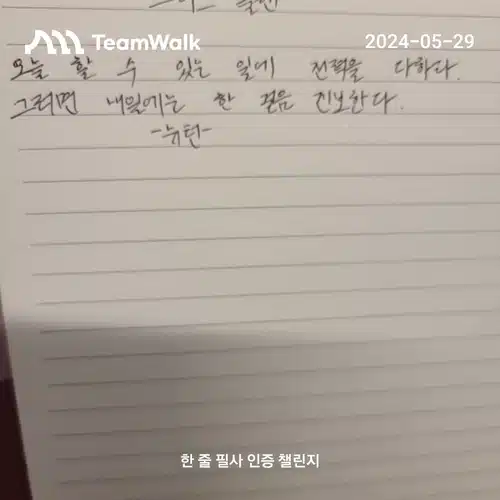 TeamWalk
2024-05-29
오늘 할 수 있는 일에 전력을 다하다.
그러면 내일에는 한 걸음 진보한다.
-뉴턴-
한 줄 필사 인증 챌린지